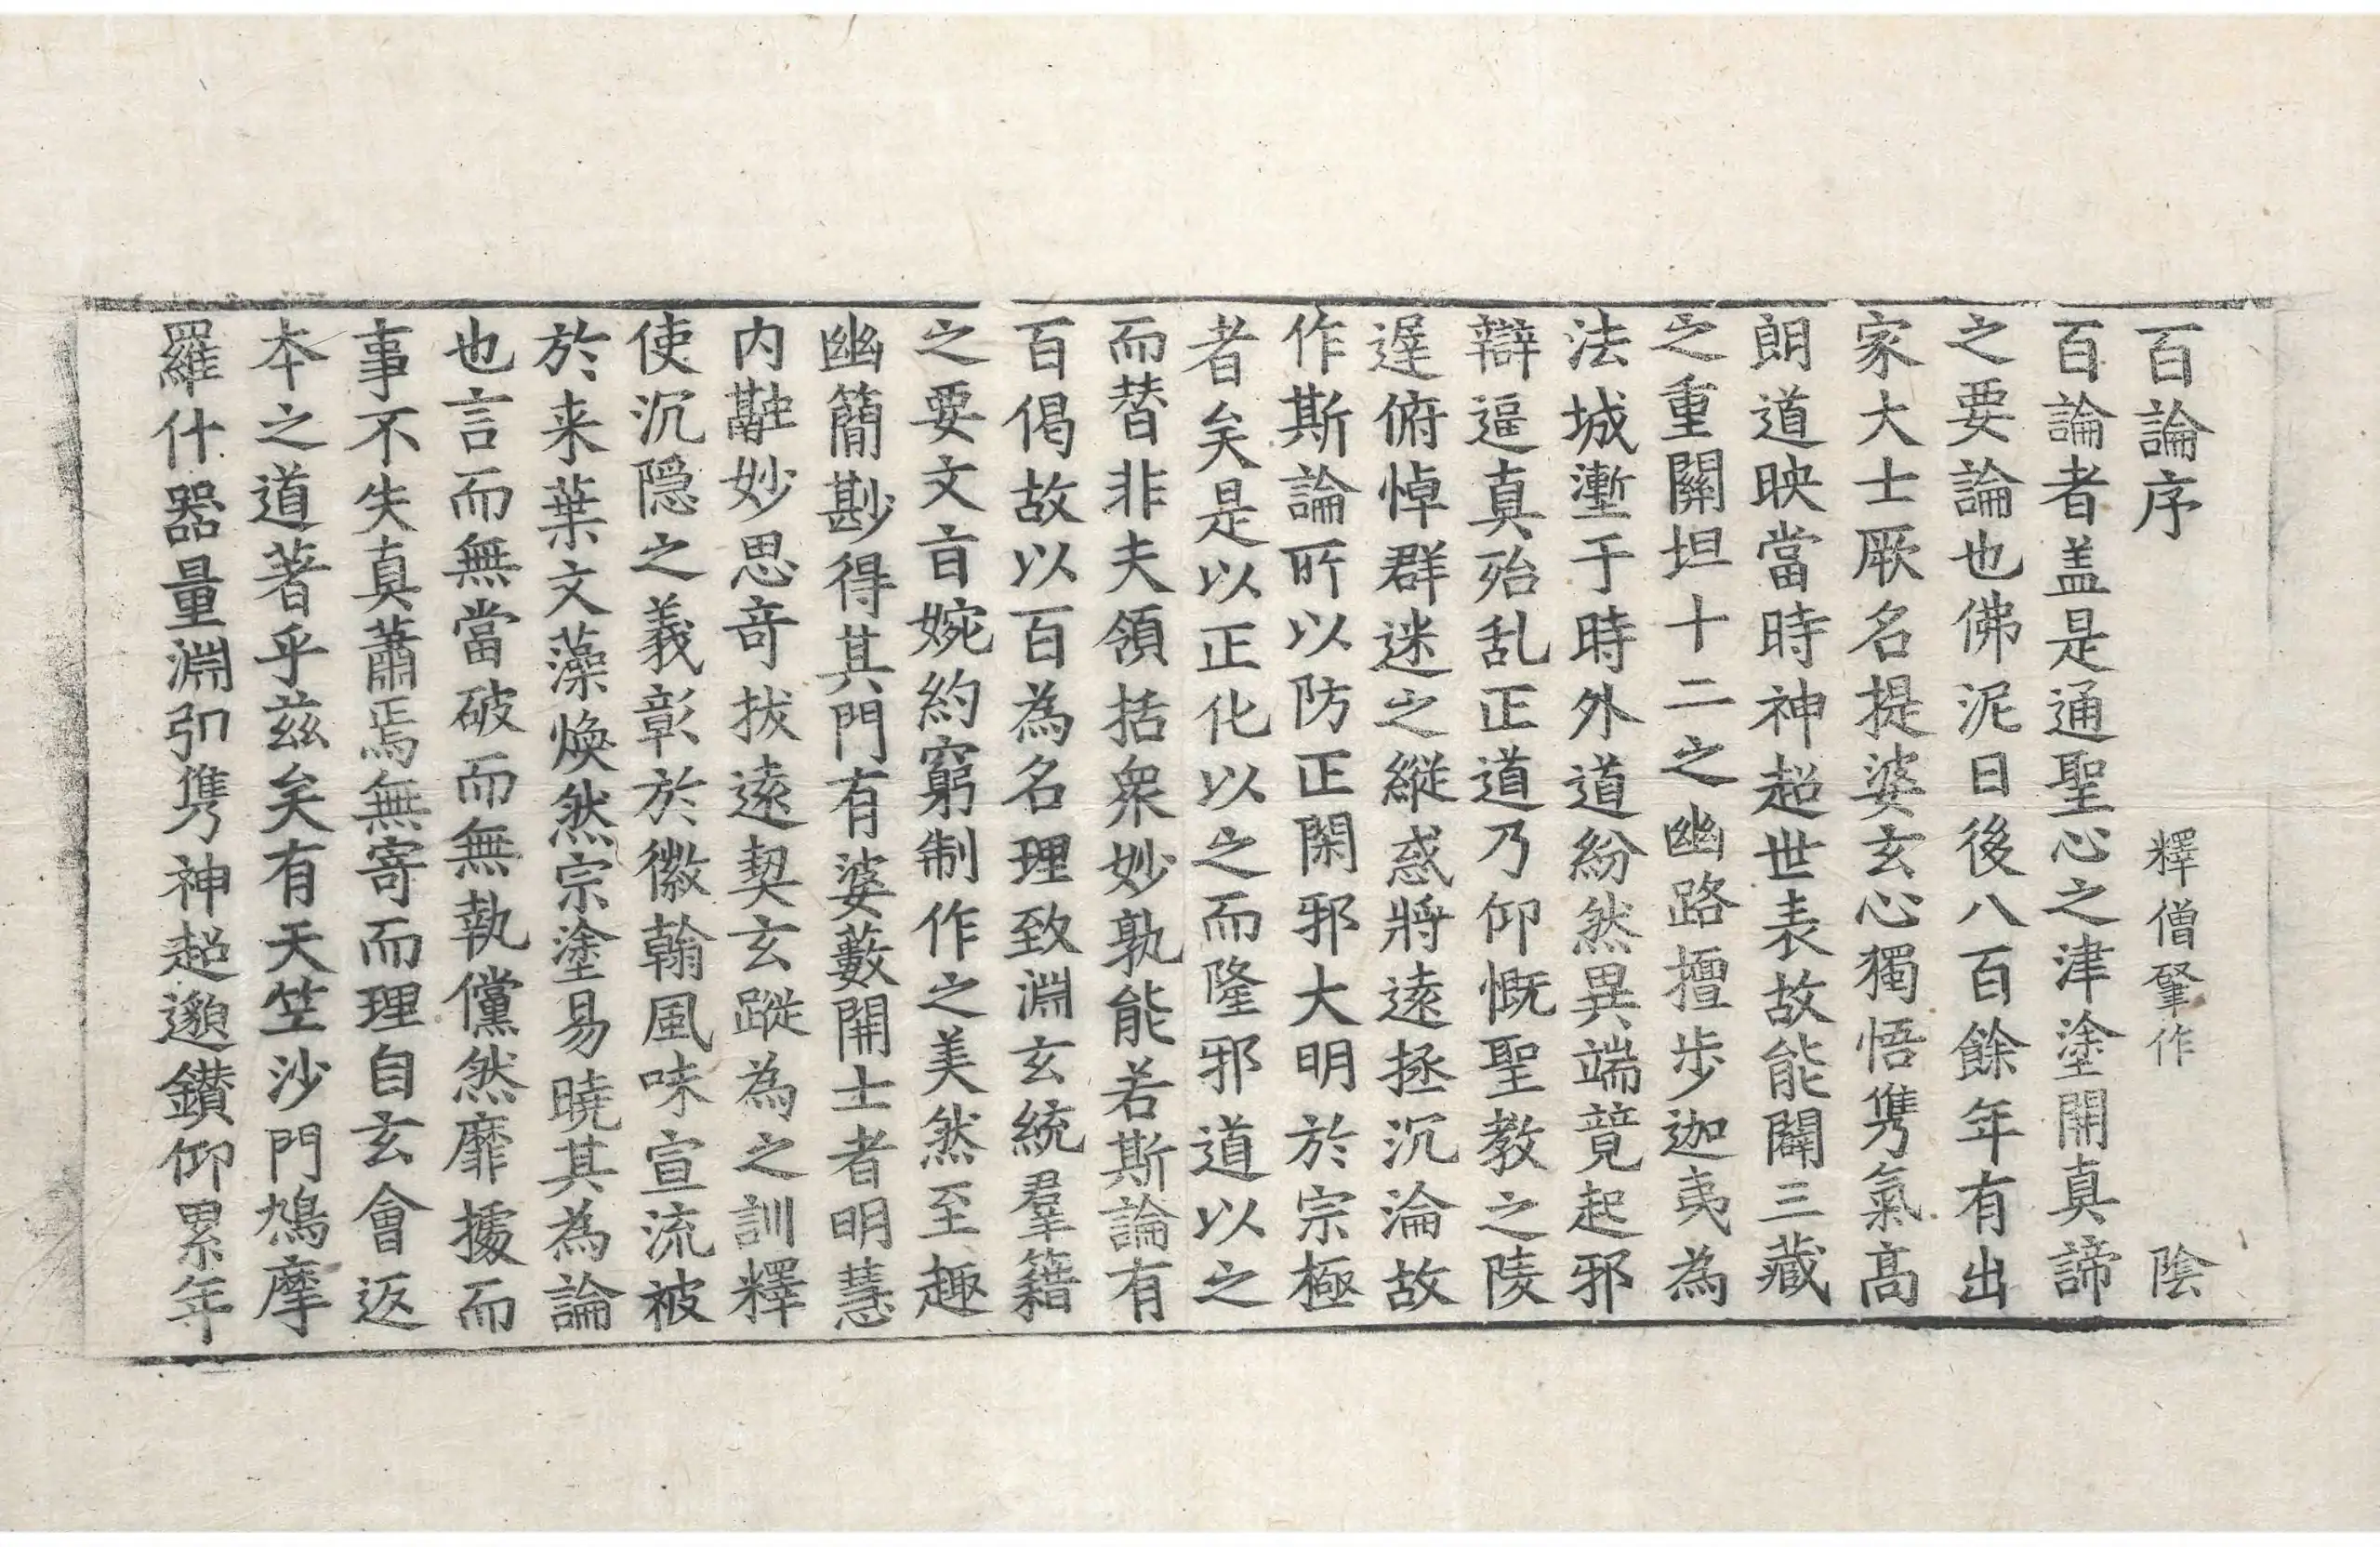 百論序 釋僧肇作 陰
百論者盖是通聖心之津塗開真諦
之要論也佛泥日後八百餘年有出
家大士厥名提婆玄心獨悟雋氣高
朗道映當時神超世表故能闢三藏
之重關坦十二之幽路擅步迦夷為
法城塹于時外道紛然異端竟起邪
辯逼真殆乱正道乃仰慨聖教之陵
遟俯悼群迷之縱惑將遠拯沉淪故
作斯論所以防正閑邪大明於宗極
者矣是以正化以之而隆邪道以之
而替非夫領括衆妙孰能若斯論有
百偈故以百為名理致淵玄統羣籍
之要文旨婉約窮制作之美然至趣
幽簡尠得其門有婆藪開士者明慧
内融妙思奇拔遠契玄蹤為之訓釋
使沉隠之義彰於徽翰風味宣流被
於来葉文藻煥然宗塗易曉其為論
也言而無當破而無執儻然靡據而
事不失真蕭焉無寄而理自玄會返
本之道著乎兹矣有天竺沙門鳩摩
羅什器量淵弘雋神超邈鑚仰累年